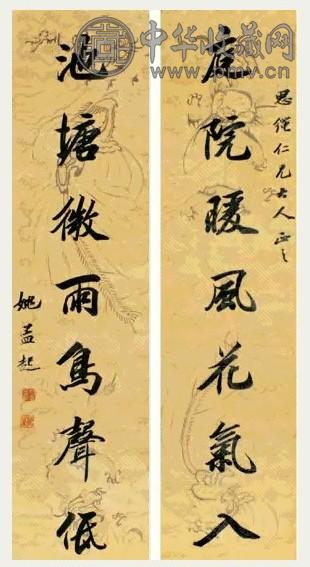 中华收藏网
庭院暖風花氣入
仁兄大人正之
池塘微雨鳥聲低
姚孟起